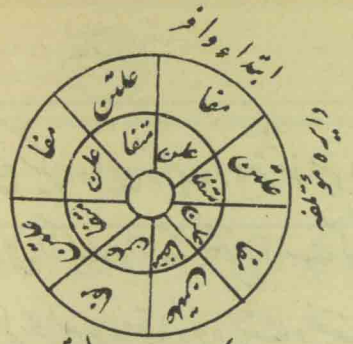 ابتداء وافر
دائره مؤتلفه
مفا
علتن
مفا
علتن
مفا
علتن
مفا
علتن
علن
متفا
علن
متفا
علن
متفا
علن
متفا